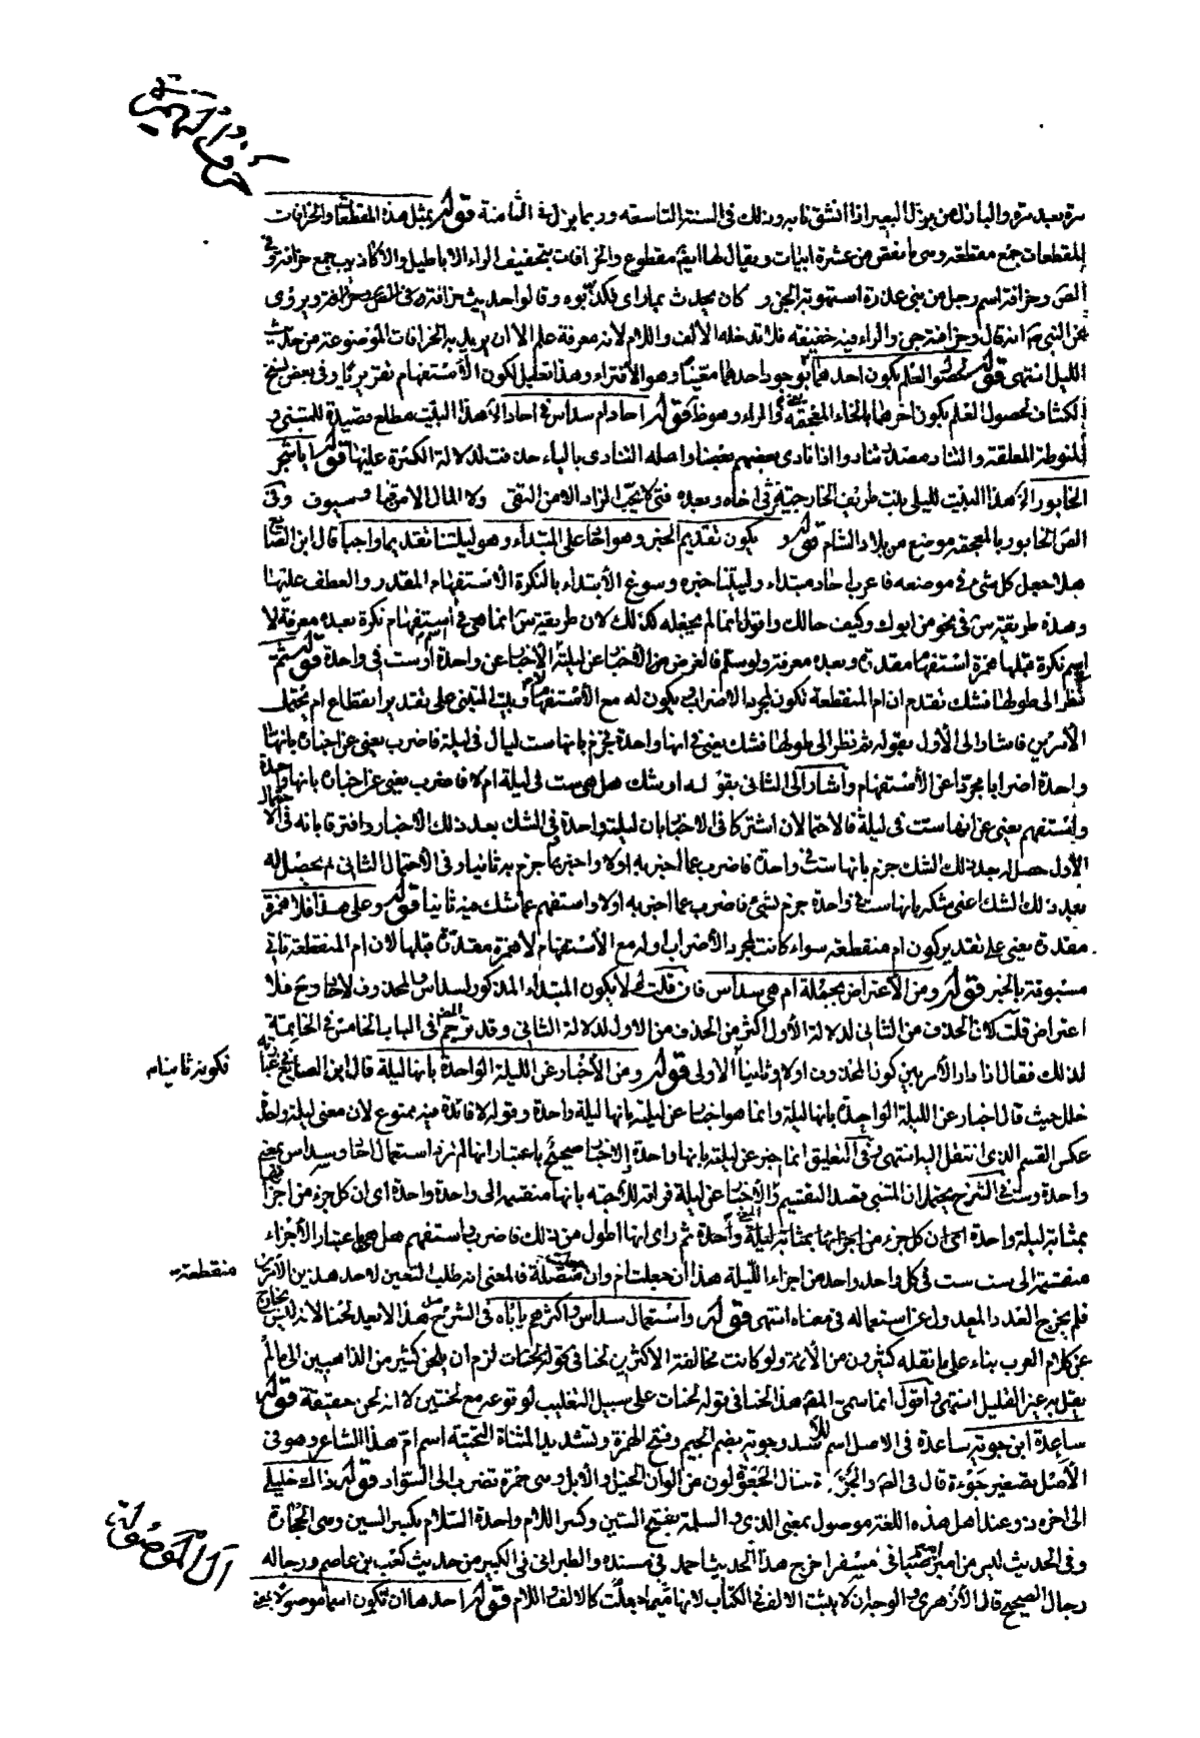 مرة بعد مرة والبازل من بزل البعير اذا انشق نابه وذلك في السنة التاسعة وربما بزل في الثامنة قوله بمثل هذه المقطعات والخرافات
المقطعات جمع مقطعة وهي ما نقص من عشرة ابيات ويقال لها ايضا مقطوع والخرافات بتخفيف الراء الاباطيل والاكاذيب جمع خرافة وفي
الص وخرافة اسم رجل من بني عذرة استهوته الجن و كان يحدث بما راى فكذبوه وقالوا حديث خرافة وفي ويروى
عن النبي انه قال وخرافة حق والراء فيه خفيفة فلا تدخله الألف واللام لانه معرفة علم الا ان يريد به الخرافات الموضوعة من حديث
الليل انتهى قوله لحصول العلم بكون احدهما بوجود احدهما معينا وهو الافتراء وهذا تعليل لكون الأستفهام تقريريا وفي بعض نسخ
الكتاب لحصول العلم بكون بالخاء المعجمة والراء وهو قوله احاد ام سداس في احاد الأهذا البيت مطلع قصيدة للمتنبي و
المنوطة المعلقة والتناد مصدر تنادوا اذا نادى بعضهم بعضا واصله التنادى بالياء حذفت لدلالة الكسرة عليها قوله ايا شجر
الخابور الخ هذا البيت لليلى بنت طريف الخارجية ترثي اخاه وبعده فتى لا يحب الزاد الا من التقى ولا المال الا من قنا وسيوف وفي
الص الخابور بالمعجمة موضع من بلاد الشام قوله و يكون تقديم الخبر وهو احاد على المبتداء وهو لييلتنا تقديما واجبا قال ابن الصائغ
هلا جعل كل شئ في موضعه فاعرب احاد مبتداء ولييلتنا خبره وسوغ الأبتداء بالنكرة الاستفهام المقدر والعطف عليها
وهذه طريقة س في نحو من ابوك وكيف حالك واقول انما لم يجعله كذلك لان طريقة س انما هي في اسم استفهام نكرة بعده معرفة لا
اسم نكرة قبلها همزة استفهام مقدرة وبعده معرفة ولو سلم فالغرض من الأخبار عن ليلة الاخبار عن واحدة أو ست في واحدة قوله ثم
نظر الى طولها فشك تقدم ان ام المنقطعة تكون لمجرد الاضراب ويكون له مع الأستفهام وبيت المتنبي على تقدير انقطاع ام يحتمل
الأمرين فاشار الى الأول بقوله ثم نظر الى طولها فشك يعني في انها واحدة فجزم بانها ست ليال في ليلة فاضرب يعني عن اخباره بانها
واحدة اضرابا مجردا عن الأستفهام وأشار الى الثاني بقوله او شك هل هي ست في ليلة ام لا فاضرب يعني عن اخباره بانها واحدة
واستفهم يعني عن انها ست في ليلة فالاحتمالان اشتركا في الاخبار بان ليلته واحدة وفي الشك بعد ذلك الاخبار وافترقا بانه في الاحتمال
الأول حصل له بعد ذلك الشك جزم بانها ست في واحدة فاضرب عما اخبر به اولا واخبر بما جزم به ثانيا وفي الأحتمال الثاني لم يحصل له
بعد ذلك الشك اعني شكه بانها ست في واحدة جزم بشئ فاضرب عما اخبر به اولا واستفهم عما شك فيه ثانيا قوله وعلى هذا فلا همزة
مقدرة يعني على تقدير كون ام منقطعة سواء كانت لمجرد الأضراب او له مع الأستفهام لا همزة مقدرة قبلها لان ام المنقطعة تاتي
مسبوقة بالخبر قوله ومن الأعتراض بجملة ام هي سداس فان قلت لم لا يكون المبتداء المذكور لسداس والمحذوف لاحاد فلا
اعتراض قلت لان الحذف من الثاني لدلالة الأول اكثر من الحذف من الاول لدلالة الثاني وقد ترجم المص في الباب الخامس في الخاتمة
لذلك فقال اذا دار الأمر بين كون المحذوف اولا وثانيا الاولى قوله ومن الأخبار عن الليلة الواحدة بانها ليلة قال ابن الصائغ في عبارته
فكونه ثانيا
خلل حيث قال اخبار عن الليلة الواحدة بانها ليلة وانما هو اخبار عن ليلة بانها ليلة واحدة وقوله لا فائدة فيه ممنوع لان معنى ليلة واحدة
عكس القسم الذي انتقل اليه انتهى وفي التعليق انما اخبر عن ليلته بانها واحدة الاخبار صحيح باعتبار انها لم نرد استعمال احاد وسداس بمعنى
واحدة وست في الشرح يحتمل ان المتنبي قصد التقسيم والأخبار عن ليلة فراقه لأحبته بانها منقسمة الى واحدة واحدة اى ان كل جزء من اجزائها
بمثابة ليلة واحدة اى ان كل جزء من اجزائها بمثابة ليلة واحدة ثم راى انها اطول من ذلك فاضرب واستفهم هل هي باعتبار الأجزاء
منقسمة الى ست ست في كل واحد واحد من اجزاء الليلة هذا ان جعلت ام وان جعلت متصلة فالمعنى انه طلب التعيين لاحد هذين الأمرين
منقطعة
فلم يخرج العدد المعدول عن استعماله في معناه انتهى قوله واستعمال سداس واكثرهم ياباه في الشرح هذا لا يعد لحنا لانه ليس بخارج
عن كلام العرب بناء على ما نقله كثيرون من الأئمة ولو كانت مخالفة الأكثرين لحنا في قوله لحنات لزم ان يلحن كثير من الذاهبين الى ما لم
يقل به غير القليل انتهى وأقول انما سمى المص هذا لحنا في قوله لحنات على سبيل التغليب لوقوعه مع لحنتين لا انه لحن حقيقة قوله
ساعدة ابن جوية ساعدة في الاصل اسم للاسد وجوية بضم الجيم وفتح الهمزة وتشديد المثناة التحتية اسم ام هذا الشاعر وهو في
الأصل تصغير جَؤوة قال في الص والجؤوة مثال الجعوة لون من الوان الخيل والأبل وهي حمرة تضرب الى السواد قوله ذاك خليلي
الى اخره ذو عند اهل هذه اللغة موصول بمعنى الذي والسلمة بفتح السين وكسر اللام واحدة السلام بكسر السين وهي الحجارة
وفي الحديث ليس من امبر امصيام في امسفر اخرج هذا الحديث احمد في مسنده والطبراني في الكبير من حديث كعب بن عاصم ورجاله
رجال الصحيح قال الأزهري والوجه ان لا يثبت الالف في الكتاب لانها ميم جعلت كالالف واللام قوله احدها ان تكون اسما موصولا بمعنى